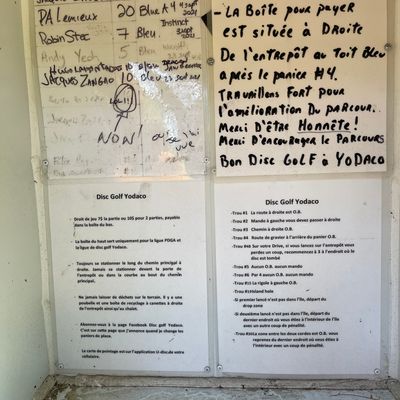 PA Lemieux 20 Blue A 4 4 sept 2021
Instinct
Robin Stoc 7 Bleu 3 sept 2021
Andy Yeoh 5 Bleu
10
JACQUES ZANGAO 10 Bleu 23 sept 2021
NON!
où je l'ai
vue
- LA BOÎTE POUR PAYER
EST SITUÉE À DROITE
DE L'ENTREPÔT AU TOIT BLEU
APRÈS LE PANIER #4.
TRAVAILLONS FORT POUR
L'AMÉLIORATION DU PARCOUR...
MERCI D'ÊTRE HONNÊTE!
MERCI D'ENCOURAGER LE PARCOURS
BON DISC GOLF À YODACO
Disc Golf Yodaco
- Droit de jeu 7$ la partie ou 10$ pour 2 parties, payable
dans la boite du bas.
- La boite du haut sert uniquement pour la ligue PDGA et
la ligue de disc golf Yodaco.
- Toujours se stationner le long du chemin principal à
droite. Jamais se stationner devant la porte de
l'entrepôt ou dans la courbe au bout du chemin
principal.
- Ne jamais laisser de déchets sur le terrain. Il y a une
poubelle et une boite de recyclage à canettes à droite
de l'entrepôt ainsi qu'au chalet.
- Abonnez-vous à la page Facebook Disc golf Yodaco.
C'est sur cette page que j'annonce quand je change les
paniers de place.
- La carte de pointage est sur l'application U-disc de votre
cellulaire.
Disc Golf Yodaco
-Trou #1 La route à droite est O.B.
-Trou #2 Mando à gauche vous devez passer à droite
-Trou #3 Chemin à droite O.B.
-Trou #4 Route de gravier à l'arrière du panier O.B.
-Trou #4 Sur votre Drive, si vous lancez sur l'entrepôt vous
perdez un coup, recommencez à 3 à l'endroit où le
disc est tombé
-Trou #5 Aucun O.B. aucun mando
-Trou #6 Par 4 aucun O.B. aucun mando
-Trou #15 La rigole à gauche O.B.
-Trou #16 Island hole
-Si premier lancé n'est pas dans l'île, départ du
drop zone
-Si deuxième lancé n'est pas dans l'île, départ du
dernier endroit où vous étiez à l'intérieur de l'île
avec un autre coup de pénalité.
-Trou #16 La zone entre les deux cordes est O.B. vous
reprenez du dernier endroit où vous étiez à
l'intérieur avec un coup de pénalité.